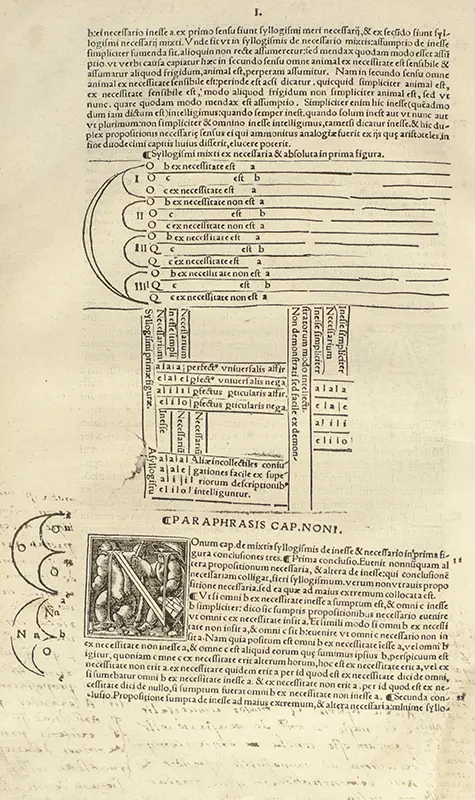 I.
b: ei necessario inesse a. ex primo sensu fiunt syllogismi meri necessarij, & ex secūdo fiunt syl-
logismi necessarij mixti. Vnde fit vt in syllogismis de necessario mixtis: assumptio de inesse
simpliciter sumenda sit. alioquin non recte assumeretur: sed mendax quodam modo esset assū
ptio. vt verbi causa capiatur hæc in secundo sensu omne animal ex necessitate est sensibile &
assumatur aliquod frigidum, animal est, perperam assumitur. Nam in secundo sensu omne
animal ex necessitate sensibile est: perinde est acsi dicatur, quicquid simpliciter animal est,
ex necessitate sensibile est, modo aliquod frigidum non simpliciter animal est, sed vt
nunc. quare quodam modo mendax est assumptio. Simpliciter enim hic inesse (quēadmo
dum iam dictum est) intelligimus: quando semper inest. quando solum inest aut vt nunc aut
vt plurimum: non simpliciter & omnino inesse intelligimus, tametsi dicatur inesse. & hic du-
plex propositionis necessariæ sensus ei qui ammonitus analogiæ fuerit ex ijs quę aristoteles, in
fine duodecimi capitis huius disserit, elucere poterit.
¶Syllogismi mixti ex necessaria & absoluta in prima figura.
O b ex necessitate est a
I O c est b
O c ex necessitate est a
O b ex necessitate non est a
II O c est b
O c ex necessitate non est a
O b ex necessitate est a
III Q c est b
Q c ex necessitate est a
O b ex necessitate non est a
IIII Q c est b
Q c ex necessitate non est a
Syllogismi primæ figuræ.
Necessarium
Inesse simpli
Necessarium
a|a|a|a| perfectꝰ vniuersalis affir.
e|a|e| pfectꝰ vniuersalis nega
a|i|i| pfectus pticularis affir.
e|i|o| pfectus pticularis nega.
Non demonstrati sed facile ex demon-
stratorum modo intellecti.
Inesse simpliciter
Necessarium
Inesse simpliciter
a|a|a
e|a|e
a|i|i
e|i|o
Inesse
Necessariū
Necessariū
Asyllogistu
a|a|a| Aliæ incollectiles coniu
e|a|e| gationes facile ex supe-
a|i|i| riorum descriptionibꝰ
e|i|o| intelliguntur.
¶PARAPHRASIS CAP. NONI.
NOnum cap. de mixtis syllogismis de inesse & necessario in prima fi-
gura conclusiones tres. ¶Prima conclusio. Euenit nonnūquam al
tera propositionum necessaria, & altera de inesse: qui conclusionē
necessariam colligat, fieri syllogismum. verum non vtrauis propo
sitione necessaria. sed ea quæ ad maius extremum collocata est.
¶Vt si omni b ex necessitate inesse a sumptum est, & omni c inesse
b simpliciter: dico sic sumptis propositionibus necessario euenire
vt omni c ex necessitate insit a. Et simili modo si omni b ex necessi
tate non insit a, & omni c sit b: euenire vt omni c necessario non in
sit a. Nam quia positum est omni b ex necessitate inesse a, vel omni b
ex necessitate non inesse a, & omne c est aliquid eorum quę sumimus ipsius b, perspicuum est
igitur, quoniam omne c ex necessitate erit alterum horum, hoc est ex necessitate erit a, vel ex
necessitate non erit a. ex necessitate quidem erit a per id quod est ex necessitate dici de omni,
si sumebatur omni b ex necessitate inesse a. & ex necessitate non erit a, per id quod est ex ne-
cessitate dici de nullo, si sumptum fuerat omni b ex necessitate non inesse a. ¶Secunda con-
clusio. Propositione sumpta de inesse ad maius extremum, & altera necessaria: minime syllo-
N a b